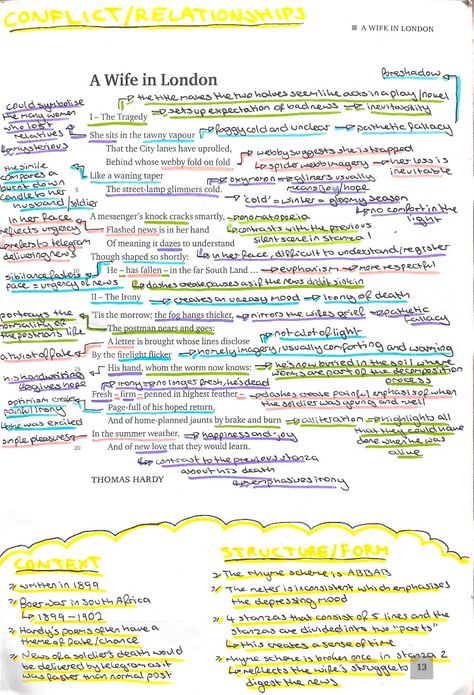 CONFLICT/RELATIONSHIPS
A WIFE IN LONDON
foreshadow
A Wife in London
the title makes the two halves seem like acts in a play/novel
I – The Tragedy
sets up expectation of bad news → inevitability
could symbolise
the many women
who lost
relatives
mysterious
She sits in the tawny vapour
foggy cold and unclear → pathetic fallacy
That the City lanes have uprolled,
webby suggests she is trapped
Behind whose webby fold on fold
spider web imagery → her loss is
inevitable
the simile
compares a
burnt down
candle to her
husband/soldier
Like a waning taper
oxymoron → glimers usually
means joy/hope
The street-lamp glimmers cold.
'cold' = winter = gloomy season
no comfort in the
light
A messenger's knock cracks smartly,
onomatopoeia
in her face
reflects urgency
Flashed news is in her hand
contrasts with the previous
silent scene in stanza 1
refers to telegram
delivering news
Of meaning it dazes to understand
Though shaped so shortly:
in her face, difficult to understand/register
sibilance faster
pace = urgency of news
He – has fallen – in the far South Land ...
euphanism → more respectful
dashes create pauses as if the news didn't sink in
II – The Irony
creates an uneasy mood → irony of death
portrays the
normality of
the postman's life
'Tis the morrow; the fog hangs thicker,
mirrors the wife's grief → pathetic
fallacy
The postman nears and goes:
A letter is brought whose lines disclose
not a lot of light
a twist of fate
By the firelight flicker
homely imagery, usually comforting and warming
his handwriting
gives hope
15
His hand, whom the worm now knows:
he's now buried in the soil where
worms are part of the decomposition
process
irony → no longer fresh, he's dead
Fresh – firm – penned in highest feather –
dashes create painful emphasis of when
the soldier was young and well
optimism creates
painful irony
Page-full of his hoped return,
she was excited
And of home-planned jaunts by brake and burn
alliteration → highlights all
that they could have
done when he was
alive
simple pleasures
In the summer weather,
happiness and joy
20
And of new love that they would learn.
contrast to the previous stanza
about his death
emphasises irony
THOMAS HARDY
CONTEXT
written in 1899
Boer war in South Africa
1899-1902
Hardy's poems often have a
theme of fate/chance
News of a soldier's death would
be delivered by telegram as it
was faster than normal post
STRUCTURE/FORM
The rhyme scheme is ABBAB
The meter is inconsistent which emphasises
the depressing mood
4 stanzas that consist of 5 lines and the
stanzas are divided into two "parts"
this creates a sense of time
rhyme scheme is broken once in stanza 2
reflects the wife's struggle to
digest the news
13